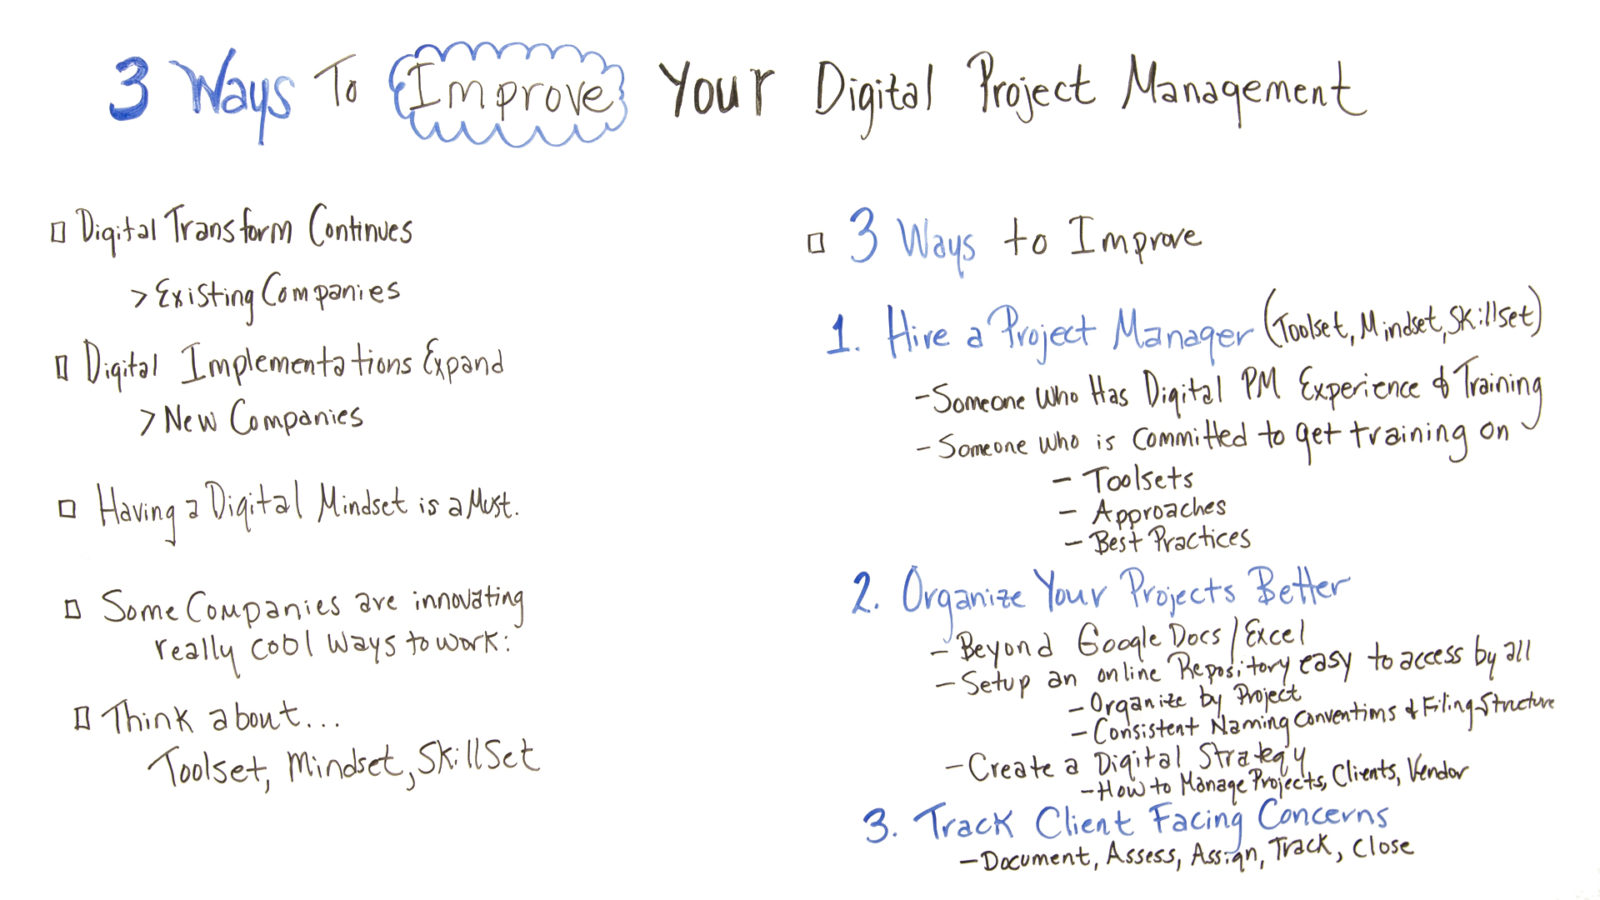 3 Ways To Improve Your Digital Project Management
Digital Transform Continues
> Existing Companies
Digital Implementations Expand
> New Companies
Having a Digital Mindset is a Must.
Some Companies are innovating
really cool ways to work:
Think about...
Toolset, Mindset, SkillSet
3 Ways to Improve
1. Hire a Project Manager (Toolset, Mindset, SkillSet)
- Someone Who Has Digital PM Experience & Training
- Someone who is committed to get training on
- Toolsets
- Approaches
- Best Practices
2. Organize Your Projects Better
- Beyond Google Docs/Excel
- Setup an online Repository easy to access by all
- Organize by Project
- Consistent Naming Conventions & Filing-Structure
- Create a Digital Strategy
- How to Manage Projects, Clients, Vendor
3. Track Client Facing Concerns
- Document, Assess, Assign, Track, Close